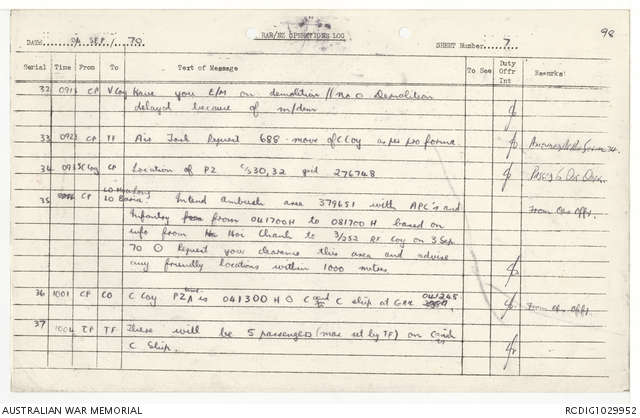 RAR/NZ OPERATIONS LOG
98
DATE 04 SEP / 70
SHEET Number 7
Serial Time From To Text of Message To See Duty Offr Int Remarks
32 0915 CP V Coy Have you C/M on demolition // No O Demolition
delayed because of m/dem
33 0923 CP TF Air Task Request 688 move of C Coy as per pro forma.
34 CP Location of PZ 276748
35 CP LO Baria Intend ambush area 379651 with APC's and
Infantry from 041700H to 081700H based on
info from Hoi Chanh to 3/252 RF Coy on 3 Sep
70 O Request your clearance this area and advise
any friendly locations within 1000 meters.
From Ops Offr.
36 1001 CP CO C Coy PZ time is 041300H O C and C ship at 041245
From Ops Offr.
37 1004 CP TF There will be 5 passengers (max set by TF) on C and
C Ship.
AUSTRALIAN WAR MEMORIAL
RCDIG1029952